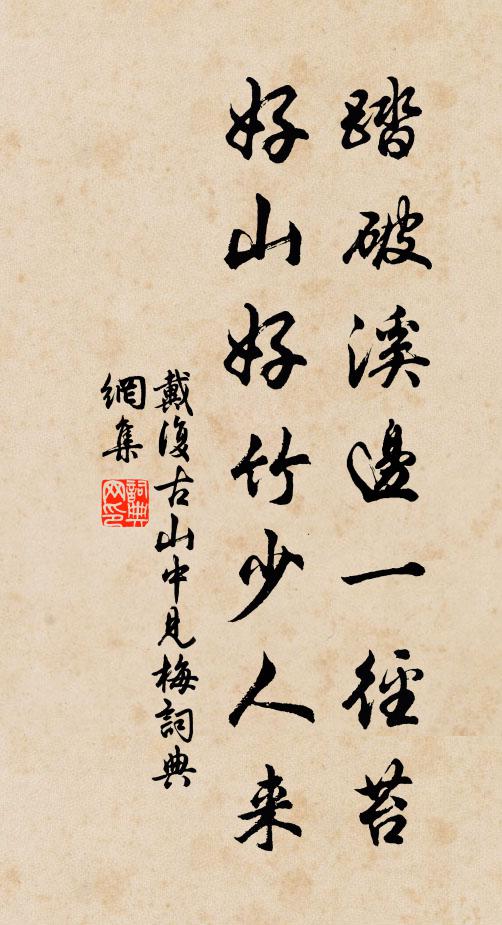 踏破溪邊一徑苔
好山好竹少人来
戴復古山中見梅詞典
網集
詞典
网印